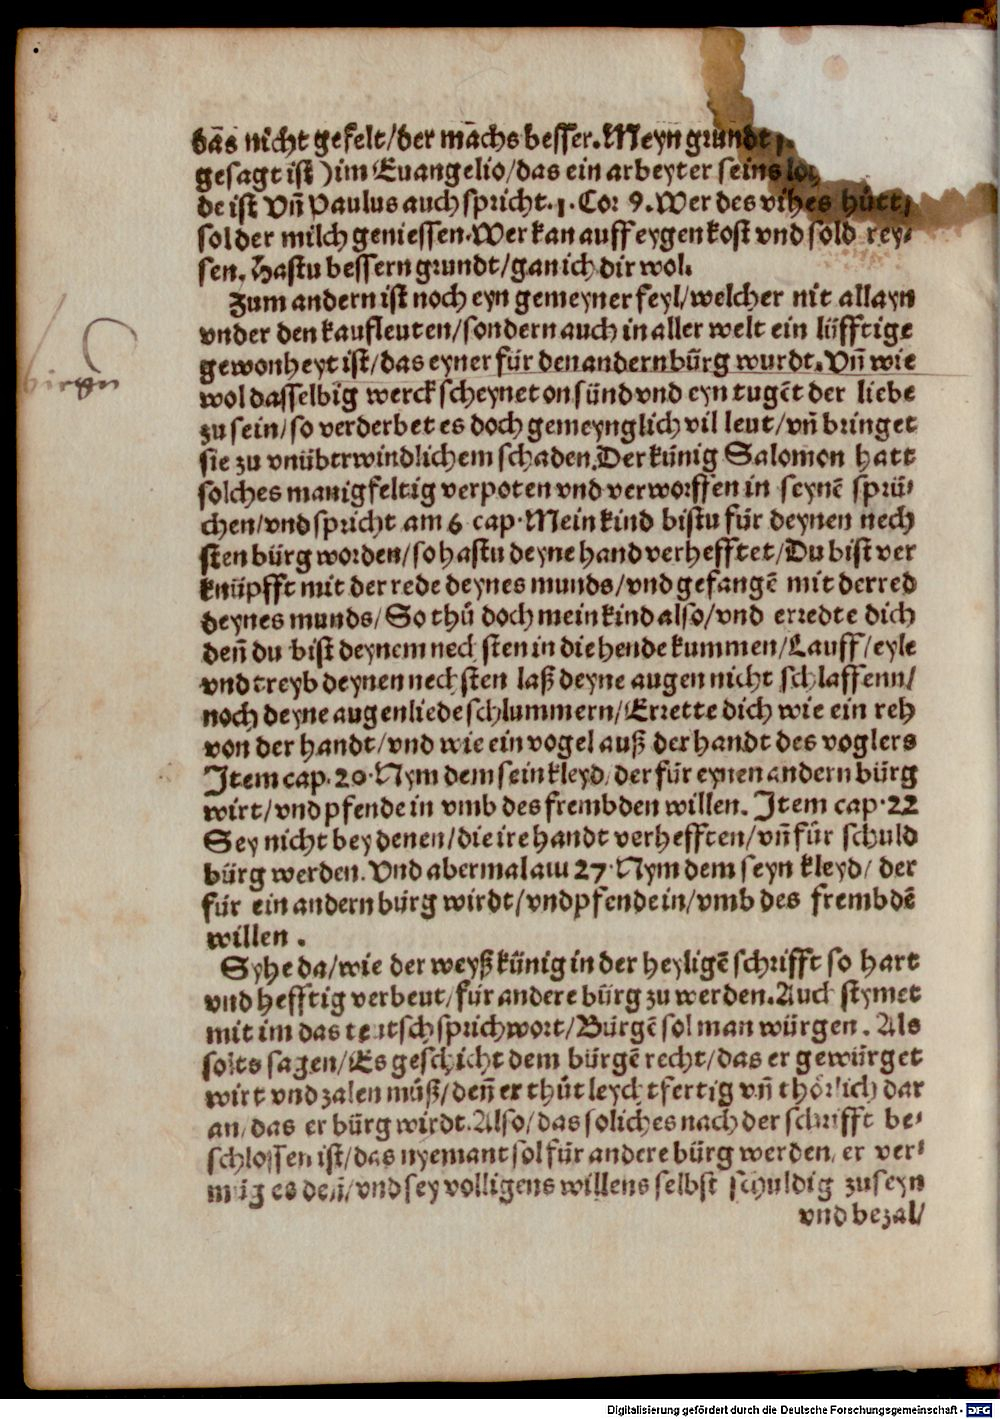 das nicht gefelt/der machs besser. Meyn grundt
gesagt ist) im Euangelio/das ein arbeyter seins
de ist Vñ Paulus auch spricht. 1. Cor 9. Wer des vihes hütt/
sol der milch geniessen. Wer kan auff eygen kost vnd sold rey-
sen. Hastu bessern grundt/gan ich dir wol.
Zum andern ist noch eyn gemeyner feyl/welcher nit allayn
vnder den kaufleuten/sondern auch in aller welt ein lüfftige
gewonheyt ist/das eyner für den andern bürg wurdt. Vñ wie
birgn
wol dasselbig werck scheynet on sünd vnd eyn tugēt der liebe
zu sein/so verderbet es doch gemeynglich vil leut/vñ bringet
sie zu vnübtrwindlichem schaden. Der künig Salomon hatt
solches manigfeltig verpoten vnd verworffen in seynē sprü-
chen/vnd spricht am 6 cap. Mein kind bistu für deynen nech
sten bürg worden/so hastu deyne hand verhefftet/Du bist ver
knüpfft mit der rede deynes munds/vnd gefangē mit der red
deynes munds/So thů doch mein kind also/vnd erredte dich
deñ du bist deynem nechsten in die hende kummen/Lauff/eyle
vnd treyb deynen nechsten laß deyne augen nicht schlaffenn/
noch deyne augenliede schlummern/Errette dich wie ein reh
von der handt/vnd wie ein vogel auß der handt des voglers
Item cap. 20. Nym dem sein kleyd/der für eynen andern bürg
wirt/vnd pfende in vmb des frembden willen. Item cap. 22
Sey nicht bey denen/die ire handt verhefften/vñ für schuld
bürg werden. Vnd abermal am 27. Nym dem seyn kleyd/der
für ein andern burg wirdt/vnd pfende in/vmb des frembdē
willen.
Syhe da/wie der weyß künig in der heyligē schrifft so hart
vnd hefftig verbeut/für andere bürg zu werden. Auch stymet
mit im das teutsch sprichwort/Bürgē sol man würgen. Als
solts sagen/Es geschicht dem bürgē recht/das er gewürget
wirt vnd zalen můß/deñ er thůt leychtfertig vñ thörlich dar
an/das er bürg wirdt. Also/das soliches nach der schrifft be-
schlossen ist/das nyemant sol für andere bürg werden/er ver-
müg es deñ/vnd sey volligens willens selbst schuldig zuseyn
vnd bezal/
Digitalisierung gefördert durch die Deutsche Forschungsgemeinschaft - DFG